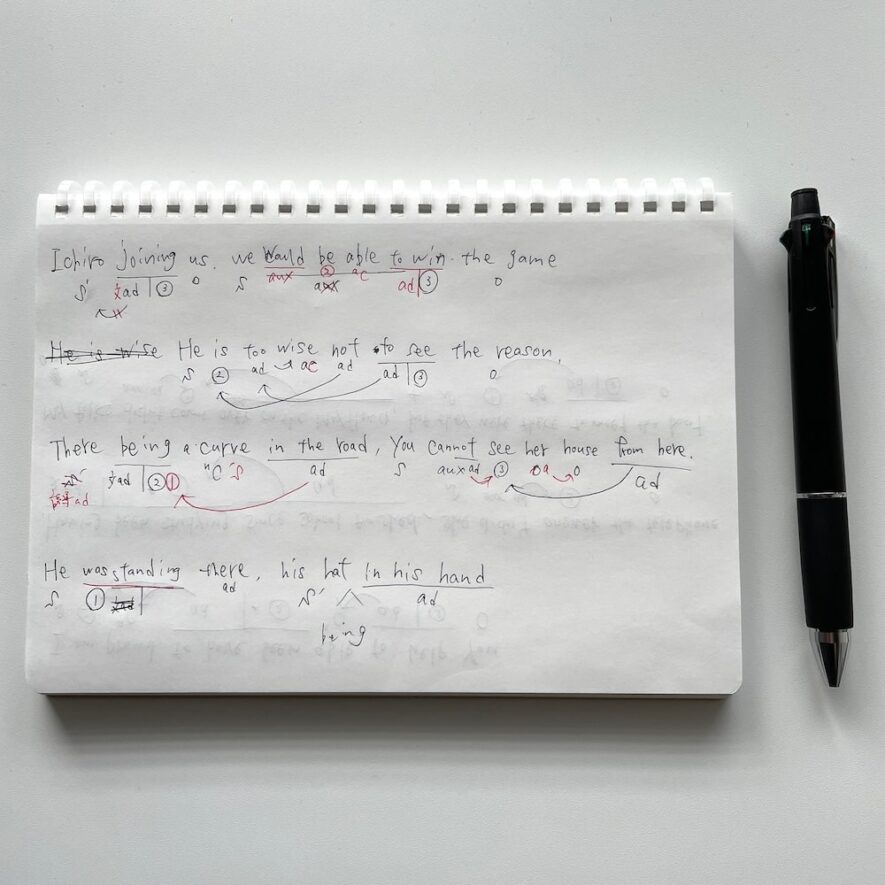 Ichiro joining us, we would be able to win the game
S' ad ③ O S aux ② aC ad ③ O
aux
He is wise He is too wise not to see the reason.
S ② ad aC ad ad ③ O
There being a curve in the road, You cannot see her house from here.
S' ad ② ① nC S ad S aux ad ③ a O ad
ad
He was standing there, his hat in his hand
S ① ad S' ad
being